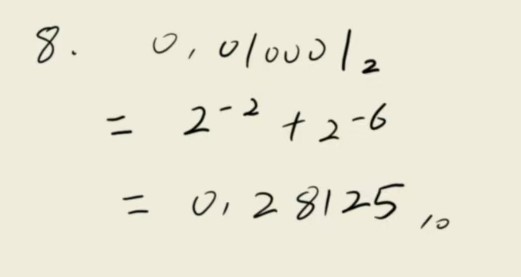 8. 0.010001₂
= 2⁻² + 2⁻⁶
= 0.28125₁₀